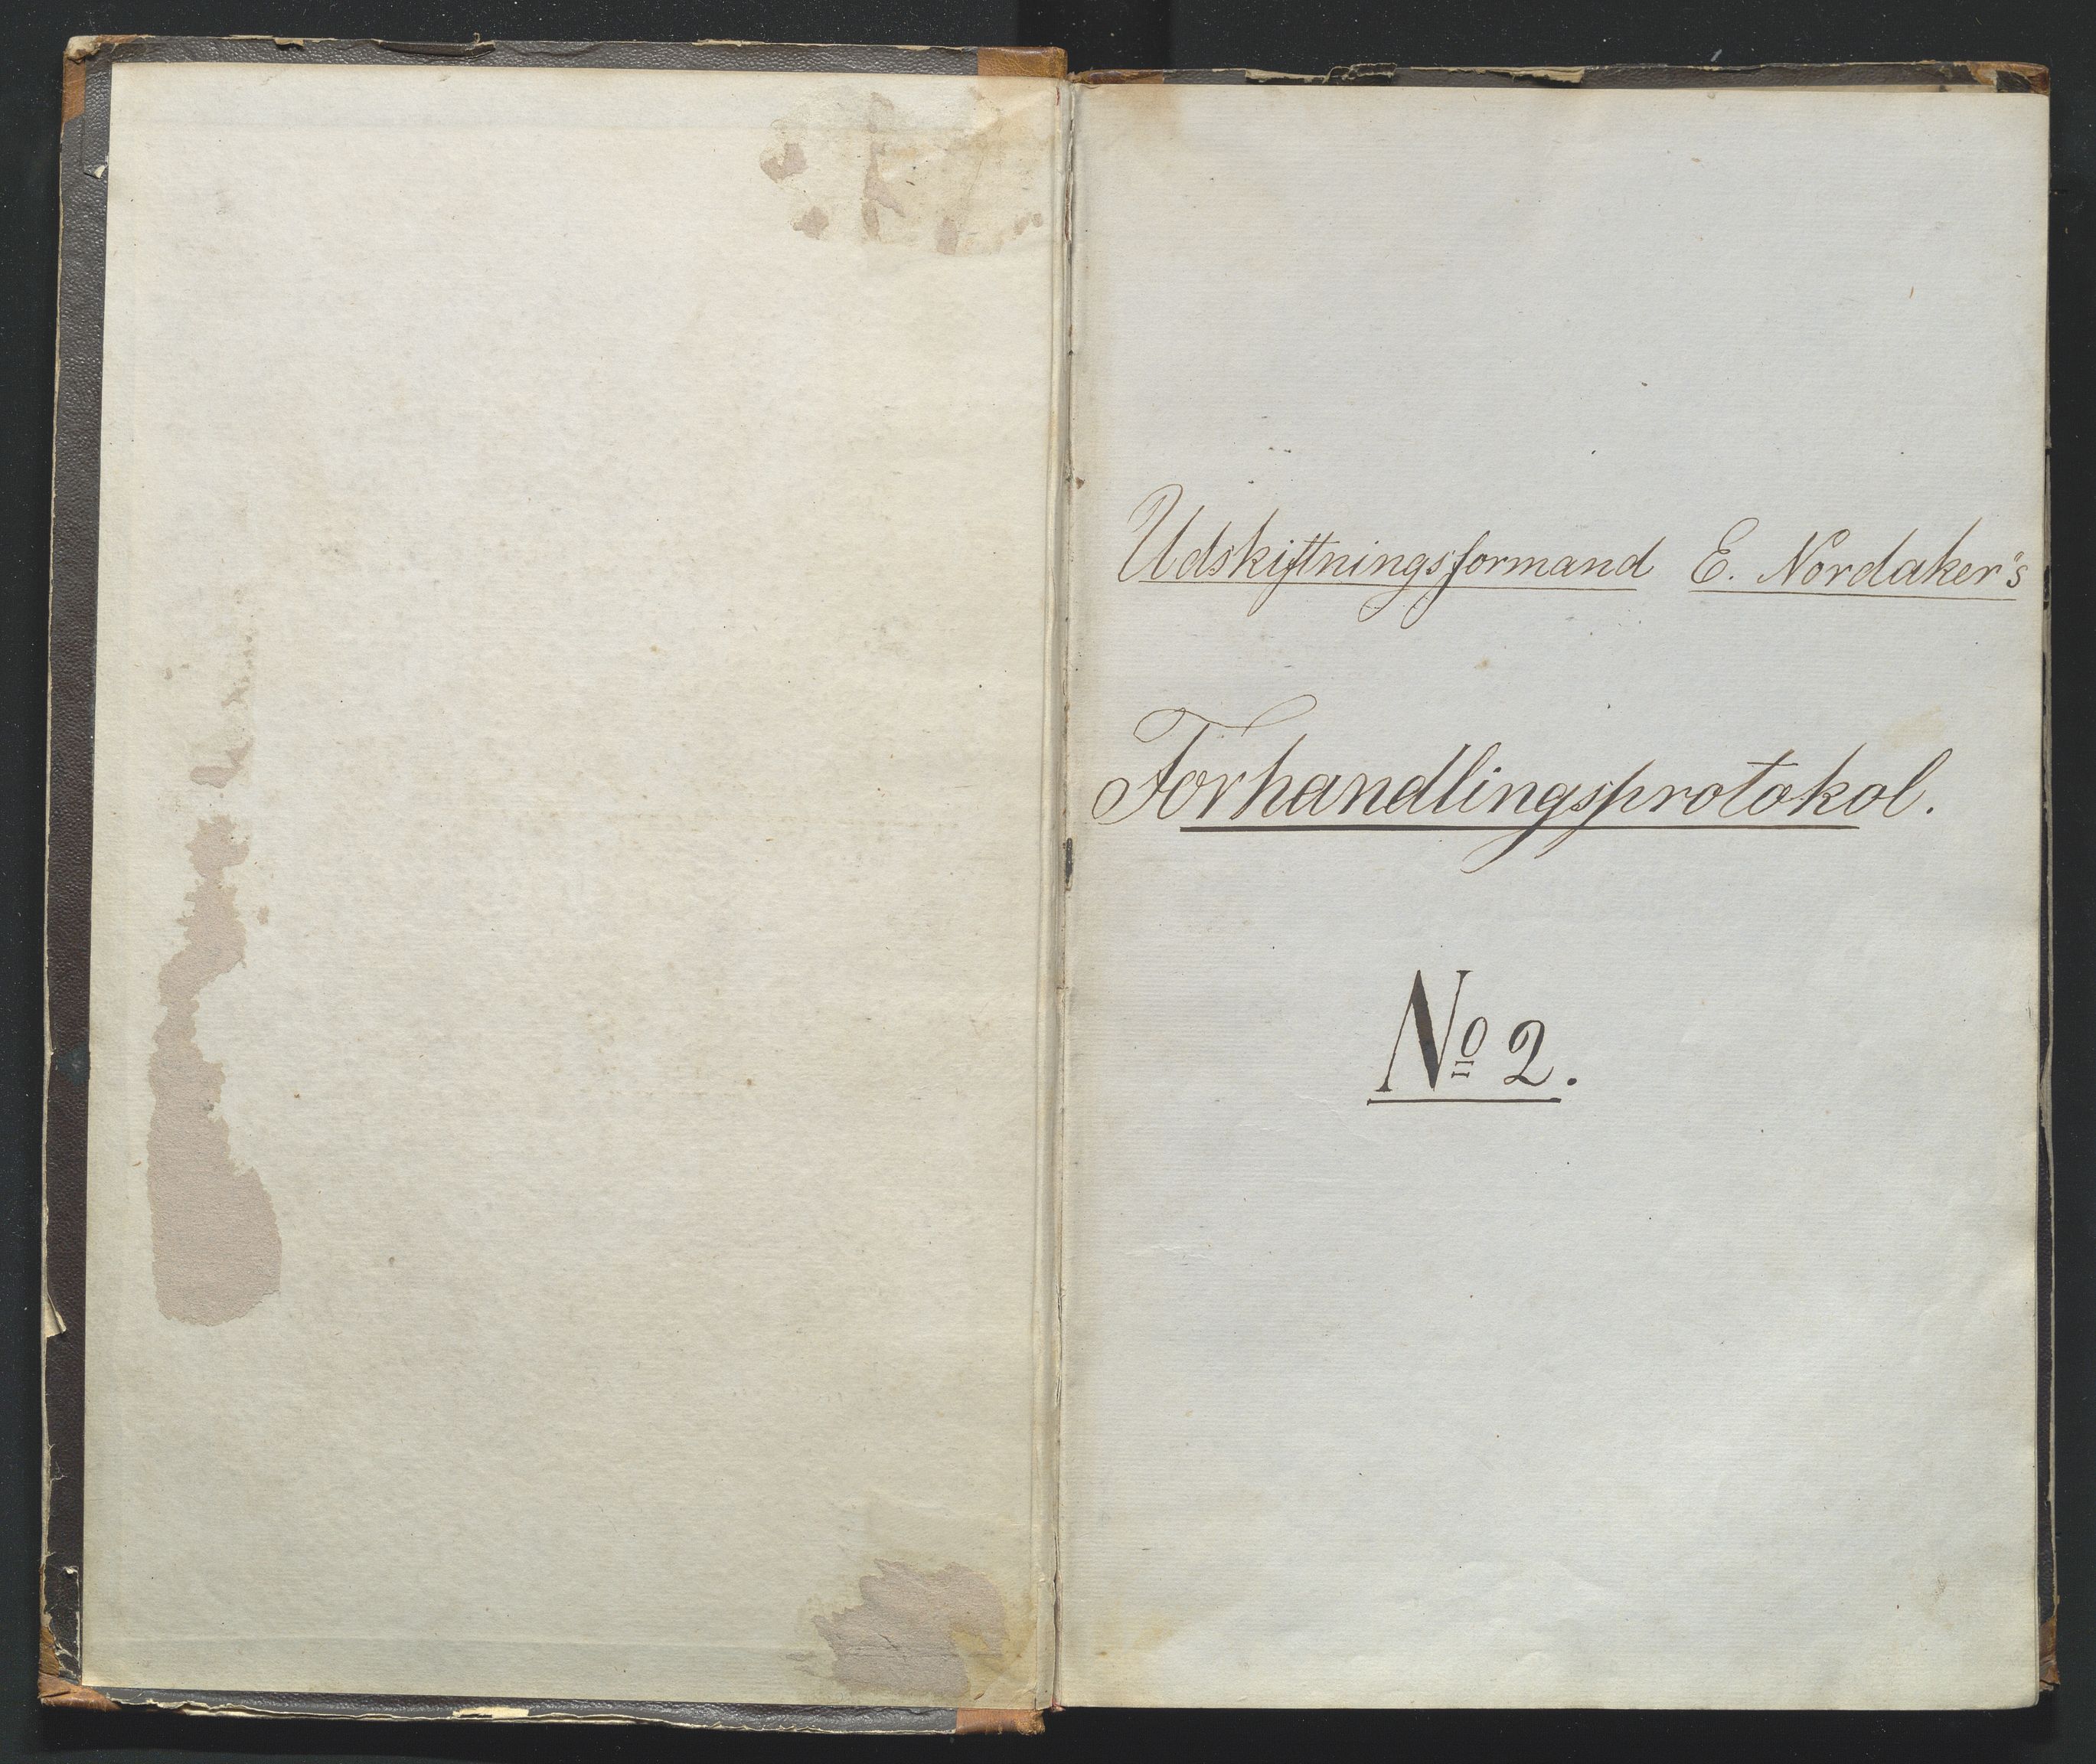 Udskiftningsformand E. Nordaker's
Forhandlingsprotokol.
No 2.